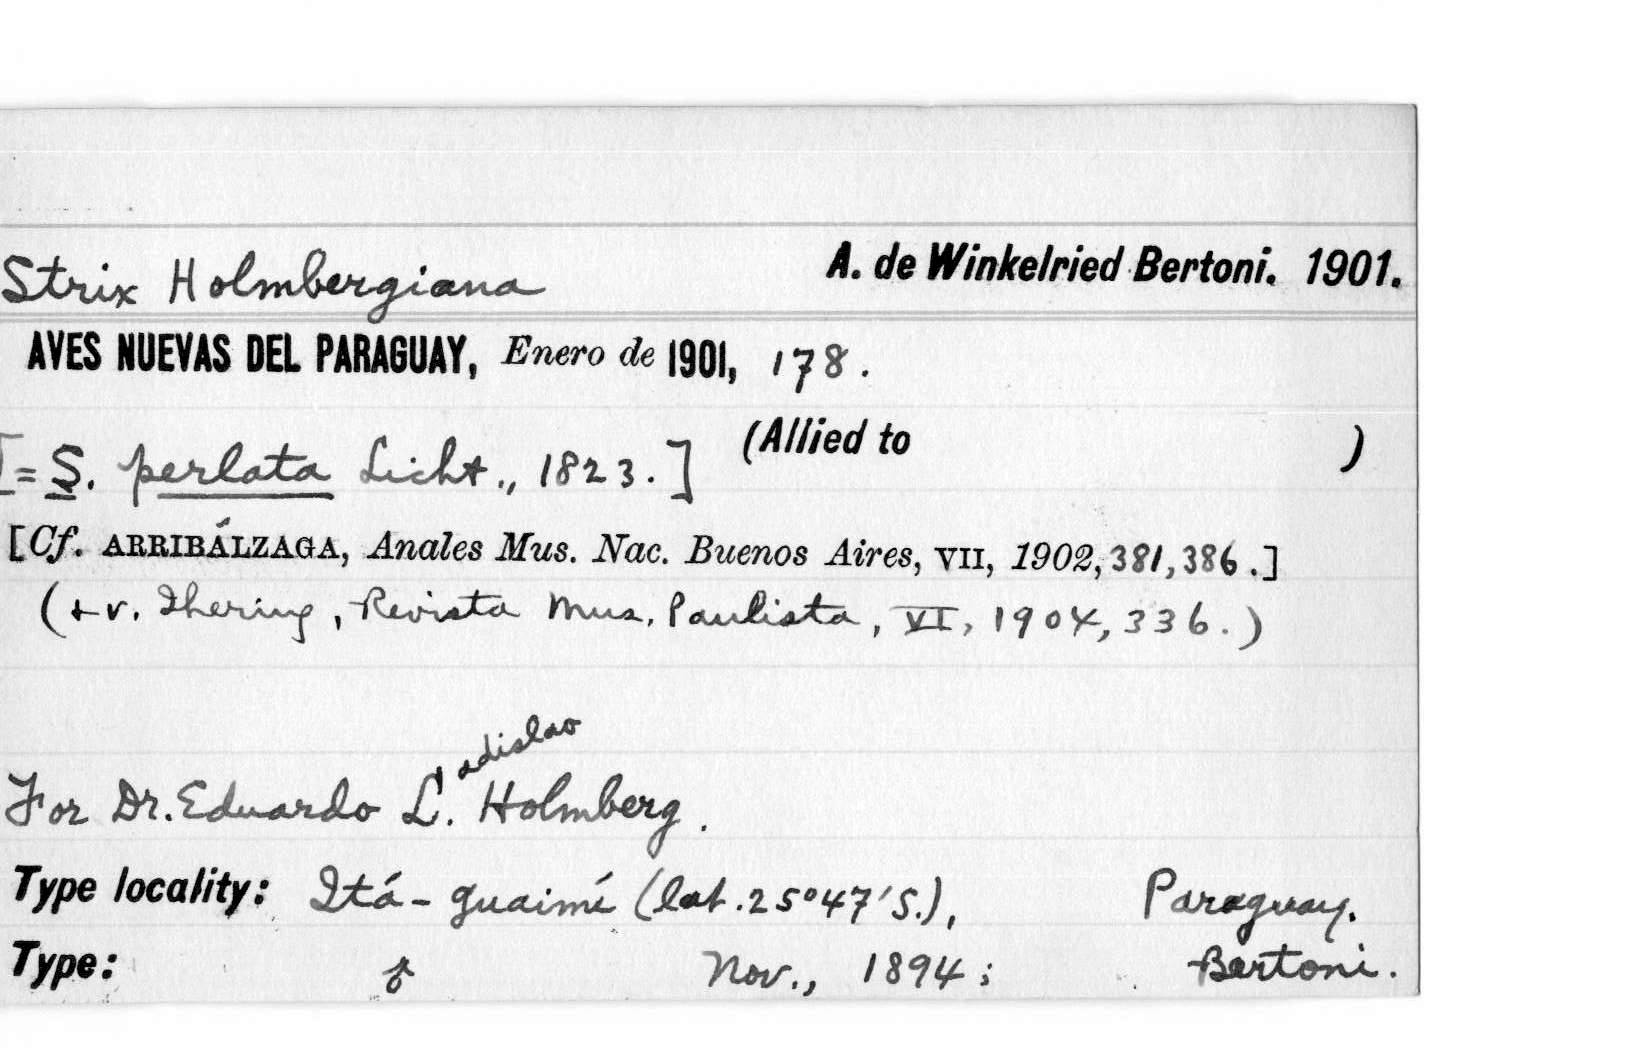 Strix Holmbergiana A. de Winkelried Bertoni. 1901.
AVES NUEVAS DEL PARAGUAY, Enero de 1901, 178.
[= S. perlata Licht., 1823.] (Allied to )
[Cf. ARRIBÁLZAGA, Anales Mus. Nac. Buenos Aires, VII, 1902, 381, 386.]
(+ v. Ihering, Revista Mus. Paulista, VI, 1904, 336.)
For Dr. Eduardo L.adislao Holmberg.
Type locality: Itá-guaimí (lat. 25°47'S.), Paraguay.
Type: ♂ Nov., 1894; Bertoni.